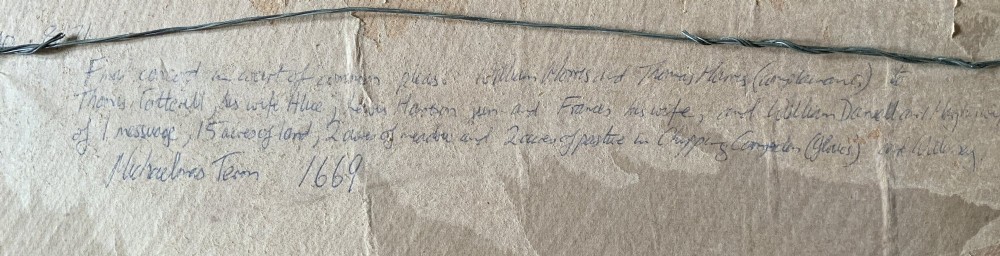 Final concord in court of common pleas. William Morris and Thomas Harris (complainants) to
Thomas Cotterell his wife Alice, Harrison jun and Frances his wife, and William Darell and his wife
of 1 messuage, 15 acres of land, 2 acres of meadow and 2 acres of pasture in Chipping Camden (Glouc)
Michaelmas Term 1669